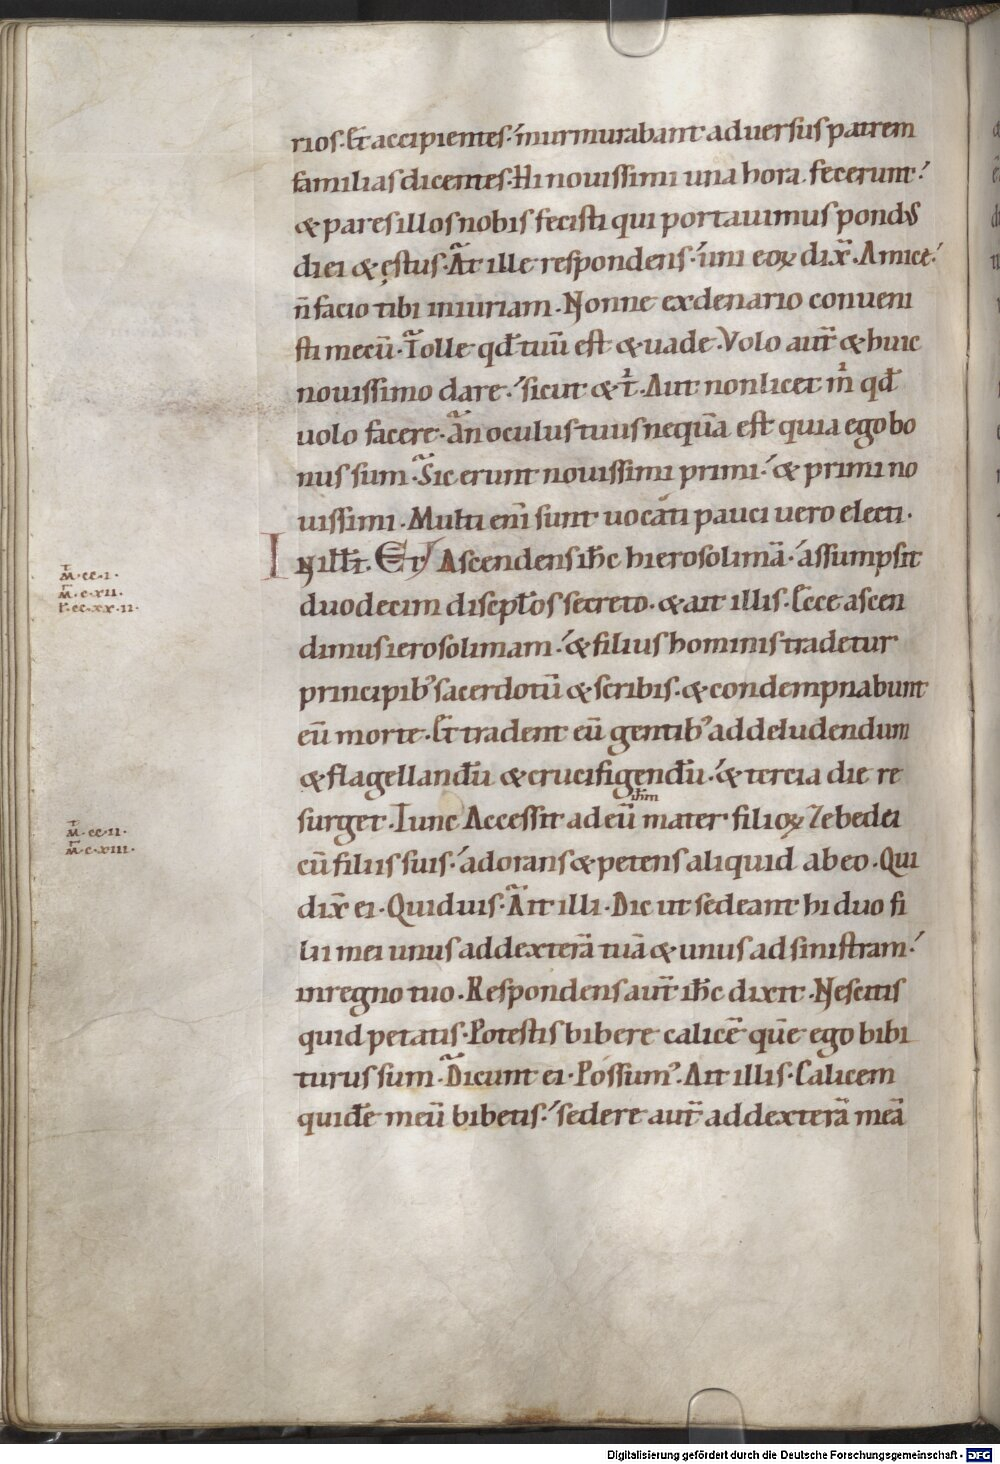 rios. Et accipientes. murmurabant aduersus patrem
familias dicentes. Hi nouissimi una hora fecerunt.
& pares illos nobis fecisti qui portauimus pondus
diei & ęstus. At ille respondens. uni eoꝝ dix̄. Amice.
n̄ facio tibi iniuriam. Nonne ex denario conueni
sti mecū. Tolle qđ tuū est & uade. Volo aut̄ & huic
nouissimo dare. sicut & t̉. Aut non licet m̉ qđ
uolo facere. An oculus tuus nequā est quia ego bo
nus sum. Sic erunt nouissimi primi. & primi no
uissimi. Multi eni sunt uocati pauci uero electi.
IN ill̄ t̄. ET Ascendens ih̄c hierosolimā. assumpsit
M̄. cc. i.
M̄. c. xii.
L̄. cc. xx. ii.
duodecim discipl̄os secreto. & ait illis. Ecce ascen
dimus ierosolimam. & filius hominis tradetur
principib; sacerdotū & scribis. & condempnabunt
eū morte. Et tradent eū gentib; ad deludendum
& flagellandū & crucifigendū. & tercia die re
surget. Tunc Accessit ad eū ih̄m mater filioꝝ Zebedei
M̄. cc. ii.
M̄. c. xiii.
cū filiis suis. adorans & petens aliquid ab eo. Qui
dix̄ ei. Quid uis. Ait illi. Dic ut sedeant hi duo fi
lii mei unus ad dexterā tuā & unus ad sinistram.
in regno tuo. Respondens aut̄ ih̄c dixit. Nescitis
quid petatis. Potestis bibere calicē quē ego bibi
turus sum. Dicunt ei. Possum᾿. Ait illis. Calicem
quidē meū bibetis. sedere aut̄ ad dexterā meā
Digitalisierung gefördert durch die Deutsche Forschungsgemeinschaft - DFG